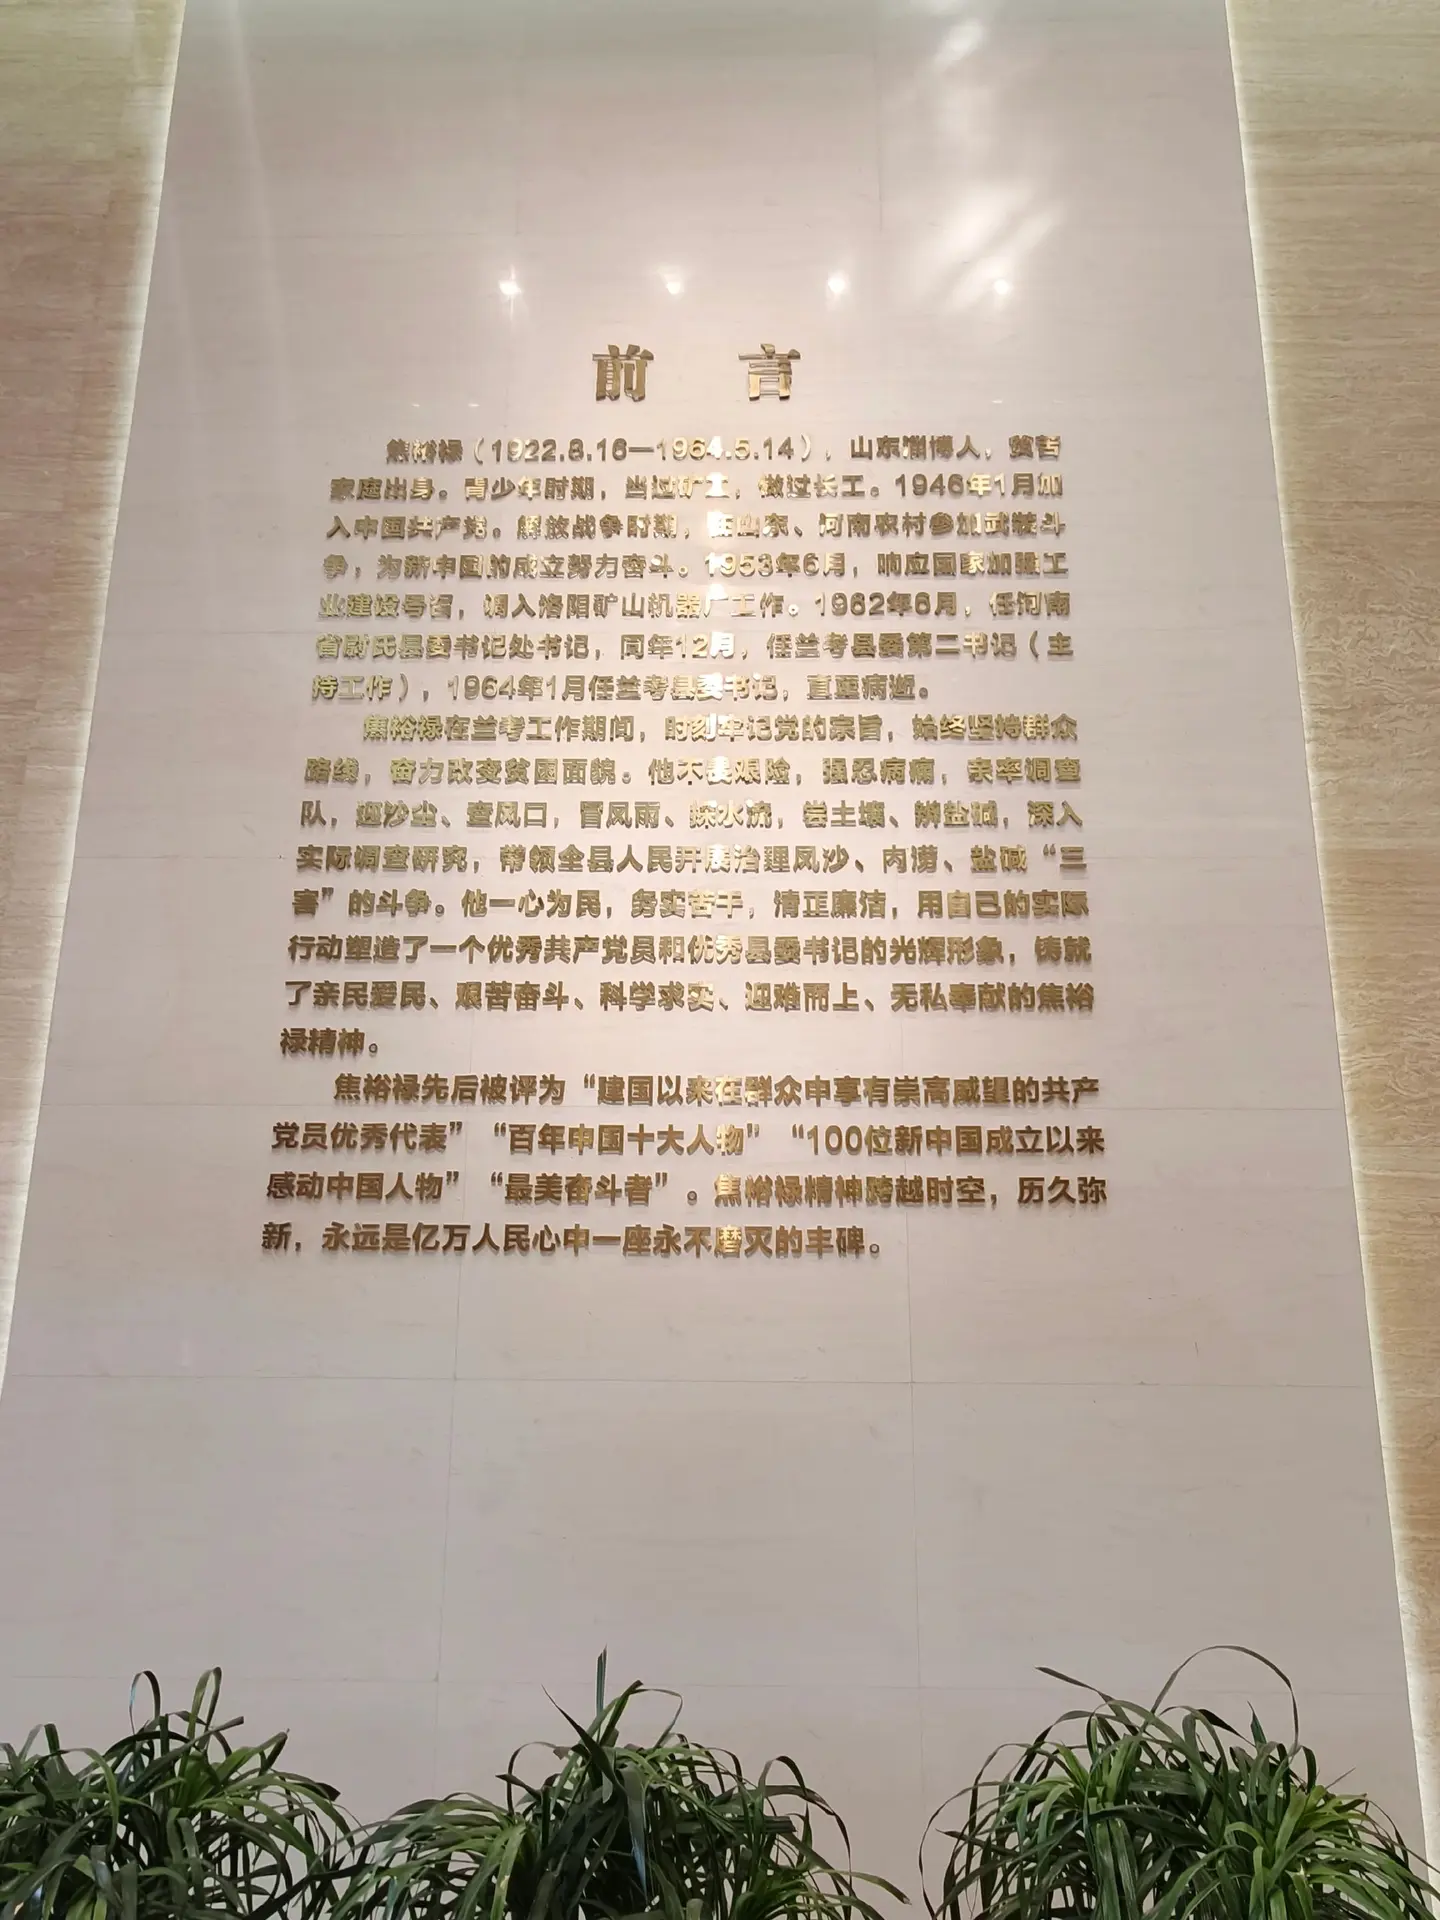 前言
焦裕禄（1922.8.16—1964.5.14），山东淄博人，贫苦
家庭出身。青少年时期，当过矿工，做过长工。1946年1月加
入中国共产党。解放战争时期，在山东、河南农村参加武装斗
争，为新中国的成立努力奋斗。1953年6月，响应国家加强工
业建设号召，调入洛阳矿山机器厂工作。1962年6月，任河南
省尉氏县委书记处书记，同年12月，任兰考县委第二书记（主
持工作），1964年1月任兰考县委书记，直至病逝。
焦裕禄在兰考工作期间，时刻牢记党的宗旨，始终坚持群众
路线，奋力改变贫困面貌。他不畏艰险，强忍病痛，亲率调查
队，迎沙尘、查风口，冒风雨、探水流，尝土壤、辨盐碱，深入
实际调查研究，带领全县人民开展治理风沙、内涝、盐碱“三
害”的斗争。他一心为民，务实苦干，清正廉洁，用自己的实际
行动塑造了一个优秀共产党员和优秀县委书记的光辉形象，铸就
了亲民爱民、艰苦奋斗、科学求实、迎难而上、无私奉献的焦裕
禄精神。
焦裕禄先后被评为“建国以来在群众中享有崇高威望的共产
党员优秀代表”“百年中国十大人物”“100位新中国成立以来
感动中国人物”“最美奋斗者”。焦裕禄精神跨越时空，历久弥
新，永远是亿万人民心中一座永不磨灭的丰碑。